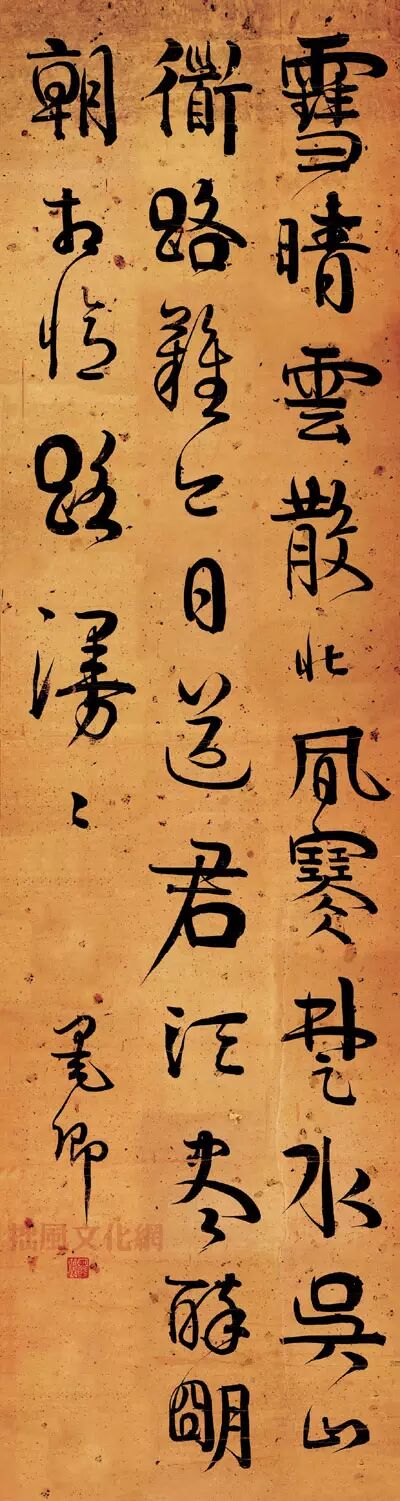 雪晴雲散北風寒楚水吳山
衜路難今日送君須盡醉朙
朝相憶路漫〻
墨卿
風文化網